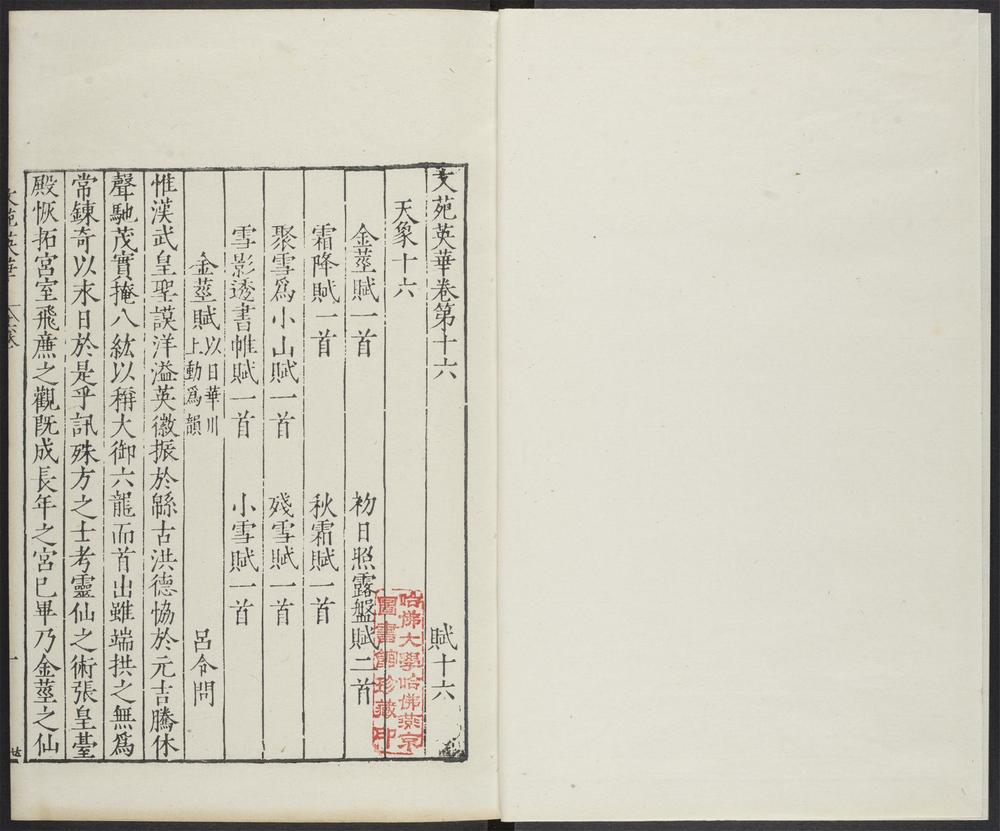 文苑英華卷第十六 賦十六
天象十六
金莖賦一首 初日照露盤賦二首
霜降賦一首 秋霜賦一首
聚雪爲小山賦一首 殘雪賦一首
雪影透書帷賦一首 小雪賦一首
金莖賦 以日華川上動爲韻 呂令問
惟漢武皇聖謨洋溢英徽振於緜古洪德恊於元吉騰休
聲馳茂實掩八紘以稱大御六龍而首出雖端拱之無爲
常鍊奇以求日於是乎訊殊方之士考靈仙之術張皇臺
殿恢拓宮室飛廉之觀旣成長年之宮已畢乃金莖之仙
哈佛大學哈佛燕京
圖書館珍藏印